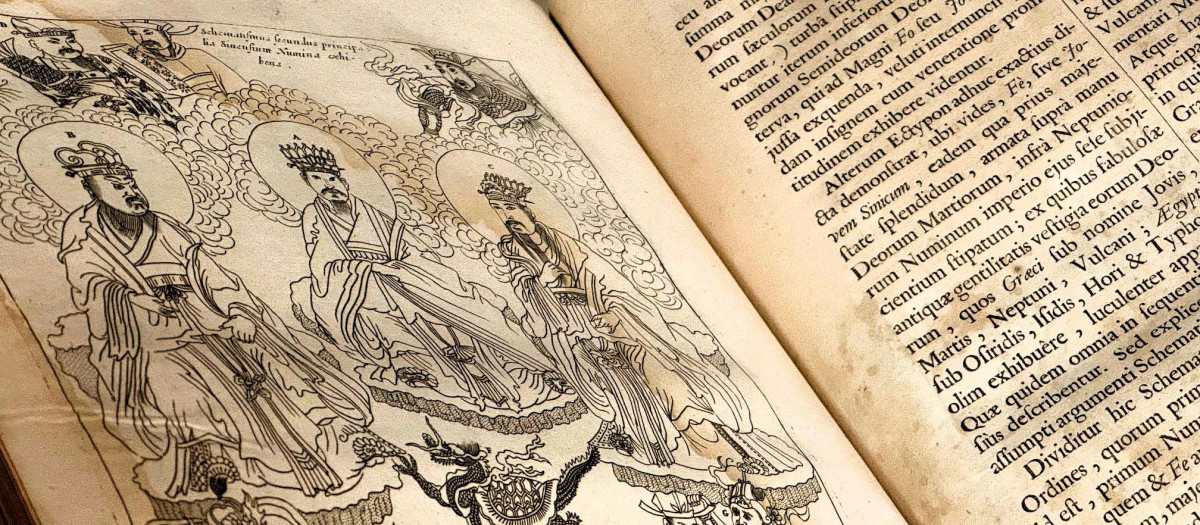 Schematismus secundus principa-
lia Sinensium Numina exhi-
bens.
D
B
A
C
ceu an
summa mi
Deorum Dea
rum sæculorum
vocant,) turbâ stip
nuntur iterum inferior
gnorum Semideorum Deo
terva, qui ad Magni Fo seu Jo
jussa exquenda, veluti internunci
dam insignem cum veneratione prom
titudinem exhibere videntur.
Alterum Ectypon adhuc exactius di-
cta demonstrat, ubi vides, Fè, sive Jo-
vem Sinicum, eadem qua prius maje-
state splendidum, armata suprà manu
Deorum Martiorum, infrà Neptunio-
rum Numinum imperio ejus sese subji-
cientium stipatum, ex quibus fabulosæ
antiquæ gentilitatis vestigia eorum Deo-
rum, quos Græci sub nomine Jovis,
Martis, Neptuni, Vulcani; Ægyp
sub Osiridis, Isidis, Hori & Typh
olim exhibuêre, luculenter app
Quæ quidem omnia in sequen
sius describentur. Sed explic
assumpti argumenti Schema
Dividitur hic Schema
Ordines, quorum prim
d est, primum Num
quem & Fe
n, maj
& lu
Vulcani
mentari M
Atque h
principi
in qu
Gr